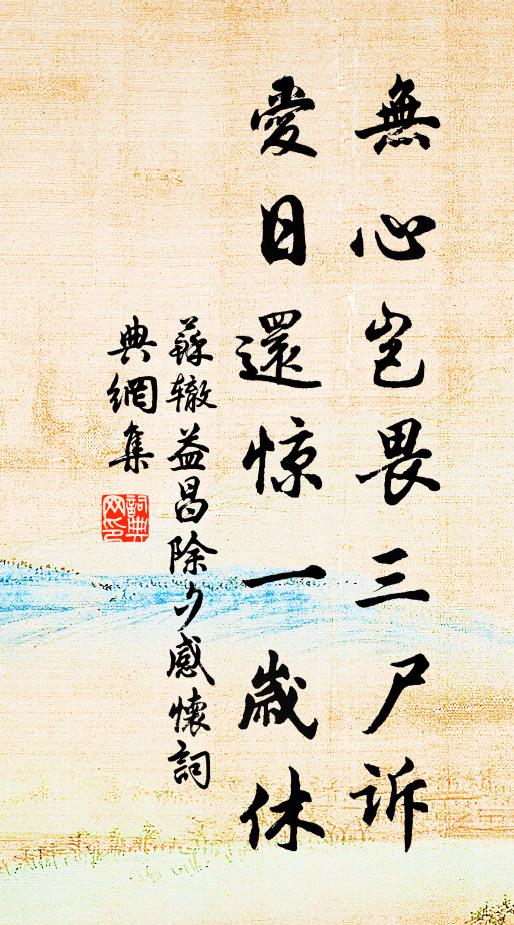 無心岂畏三尸诉
愛日還惊一歲休
蘇辙益昌除夕感懷詞
典網集
詞典
网印